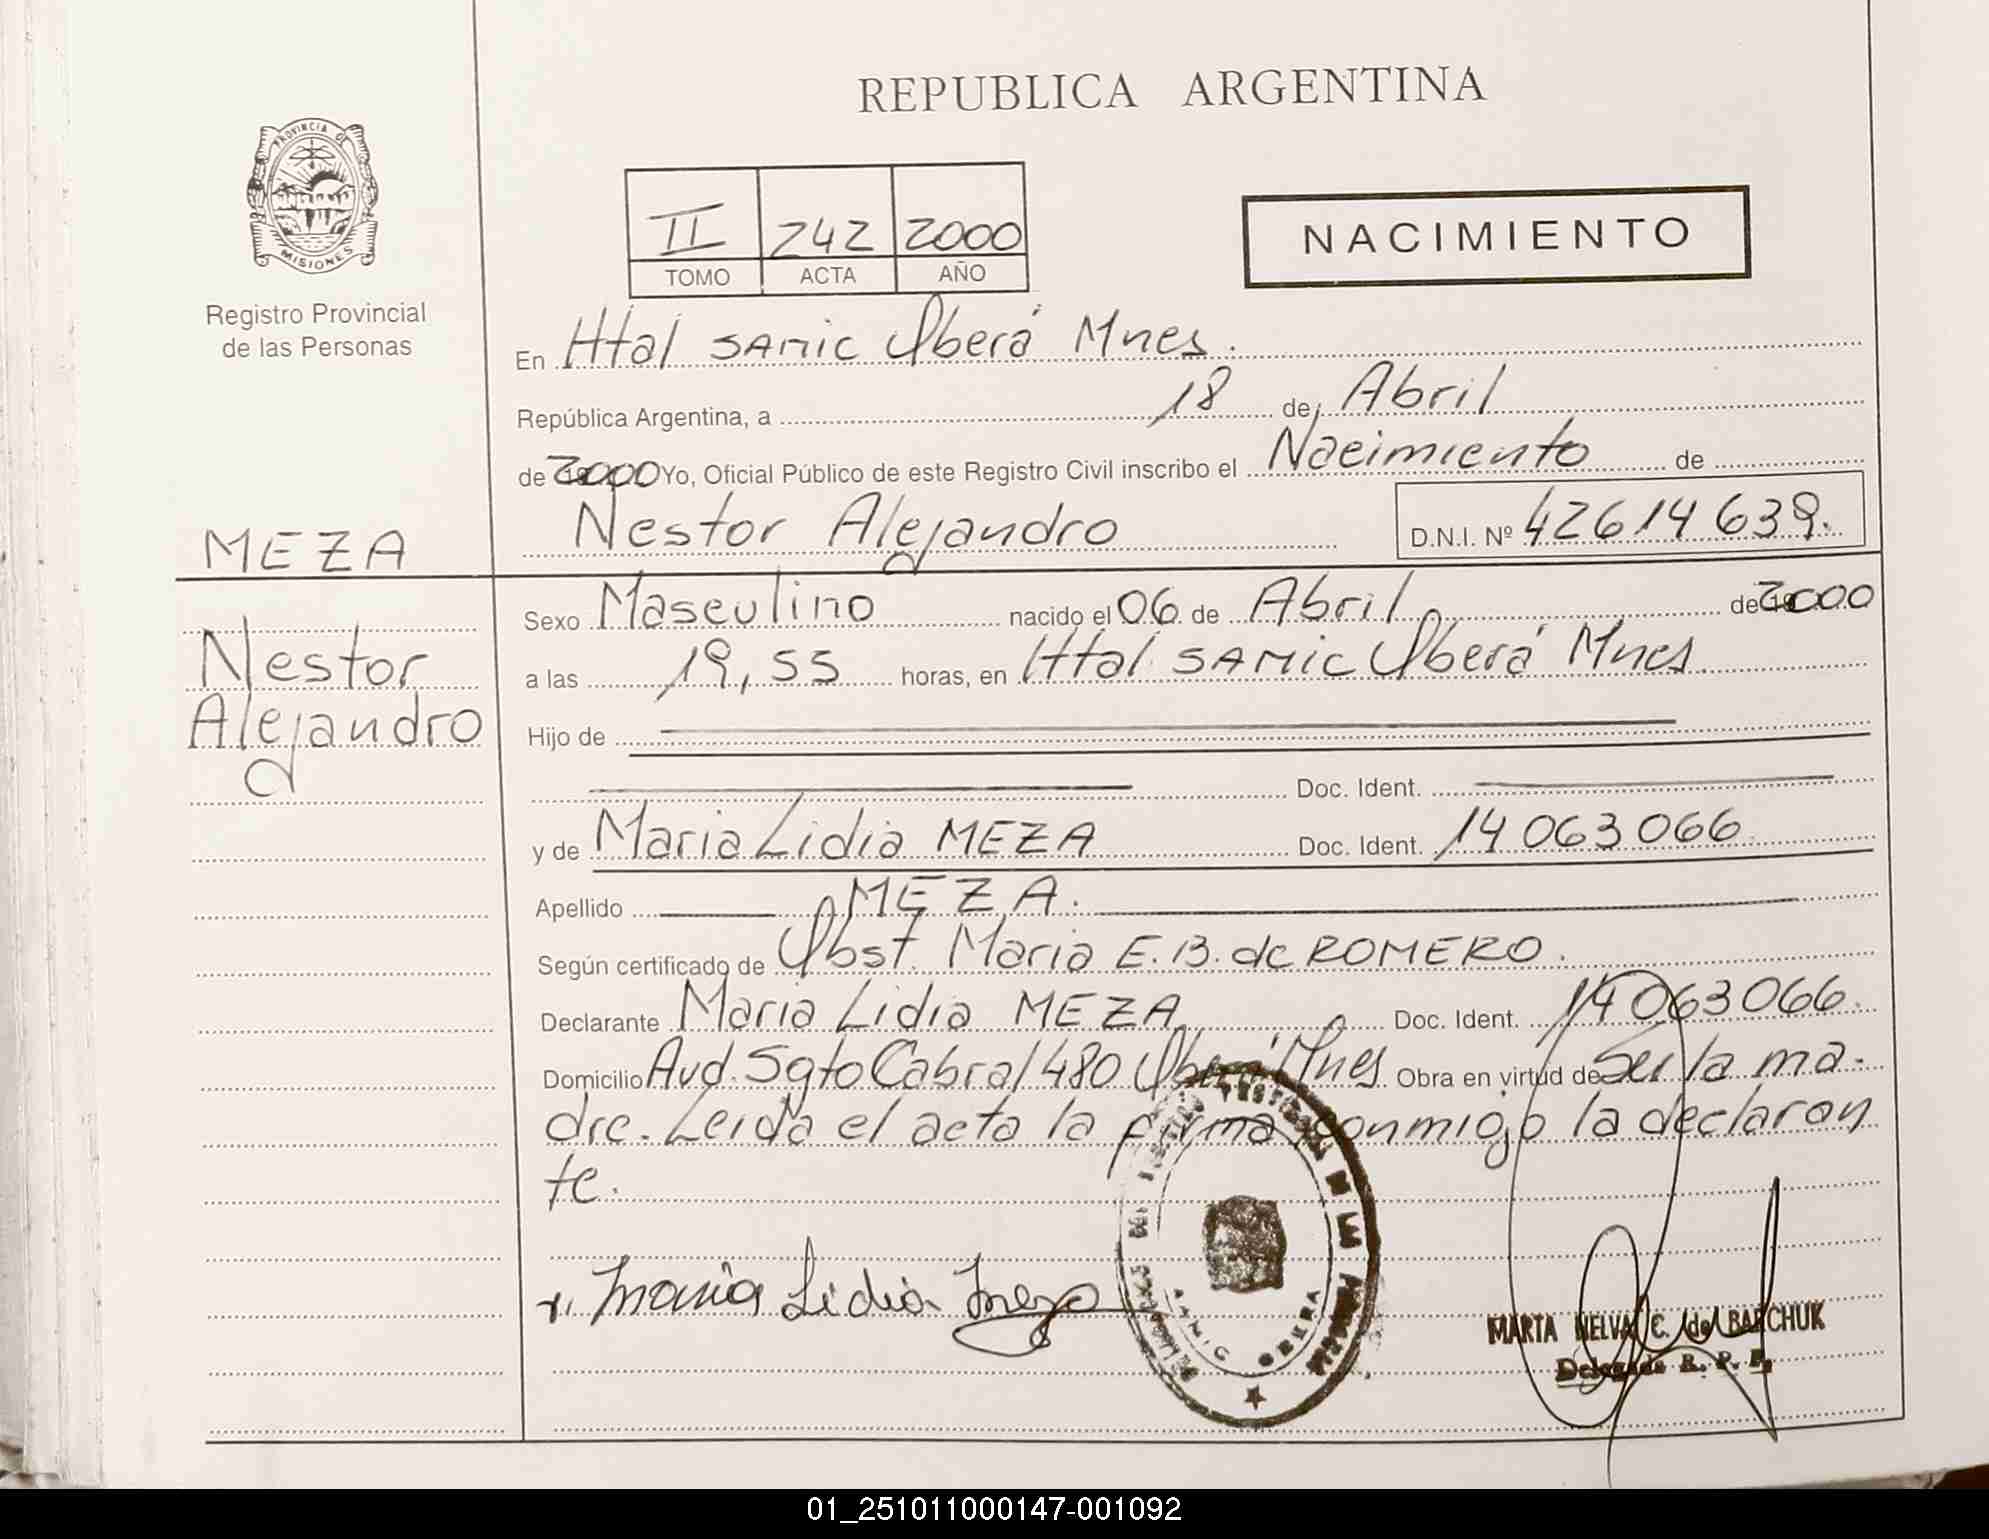 REPUBLICA ARGENTINA
PROVINCIA DE
MISIONES
Registro Provincial
de las Personas
II 242 2000
TOMO ACTA AÑO
NACIMIENTO
En Htal SAMIC Oberá Mnes.
República Argentina, a 18 de Abril
de 2000 Yo, Oficial Público de este Registro Civil inscribo el Nacimiento de
Nestor Alejandro D.N.I. Nº 42614639.
MEZA
Nestor
Alejandro
Sexo Masculino nacido el 06 de Abril de 2000
a las 19,55 horas, en Htal SAMIC Oberá Mnes
Hijo de
Doc. Ident.
y de Maria Lidia MEZA Doc. Ident. 14063066
Apellido MEZA.
Según certificado de Obst. Maria E. B. de ROMERO.
Declarante Maria Lidia MEZA Doc. Ident. 14063066.
Domicilio Avd. Sgto Cabral 480 Oberá Mnes Obra en virtud de Ser la ma-
dre. Leida el acta la firma conmigo la declaran
te.
Maria Lidia Meza
SAMIC OBERA
MARTA NELVA C. de BARCHUK
Delegada R. P. P.
01_251011000147-001092